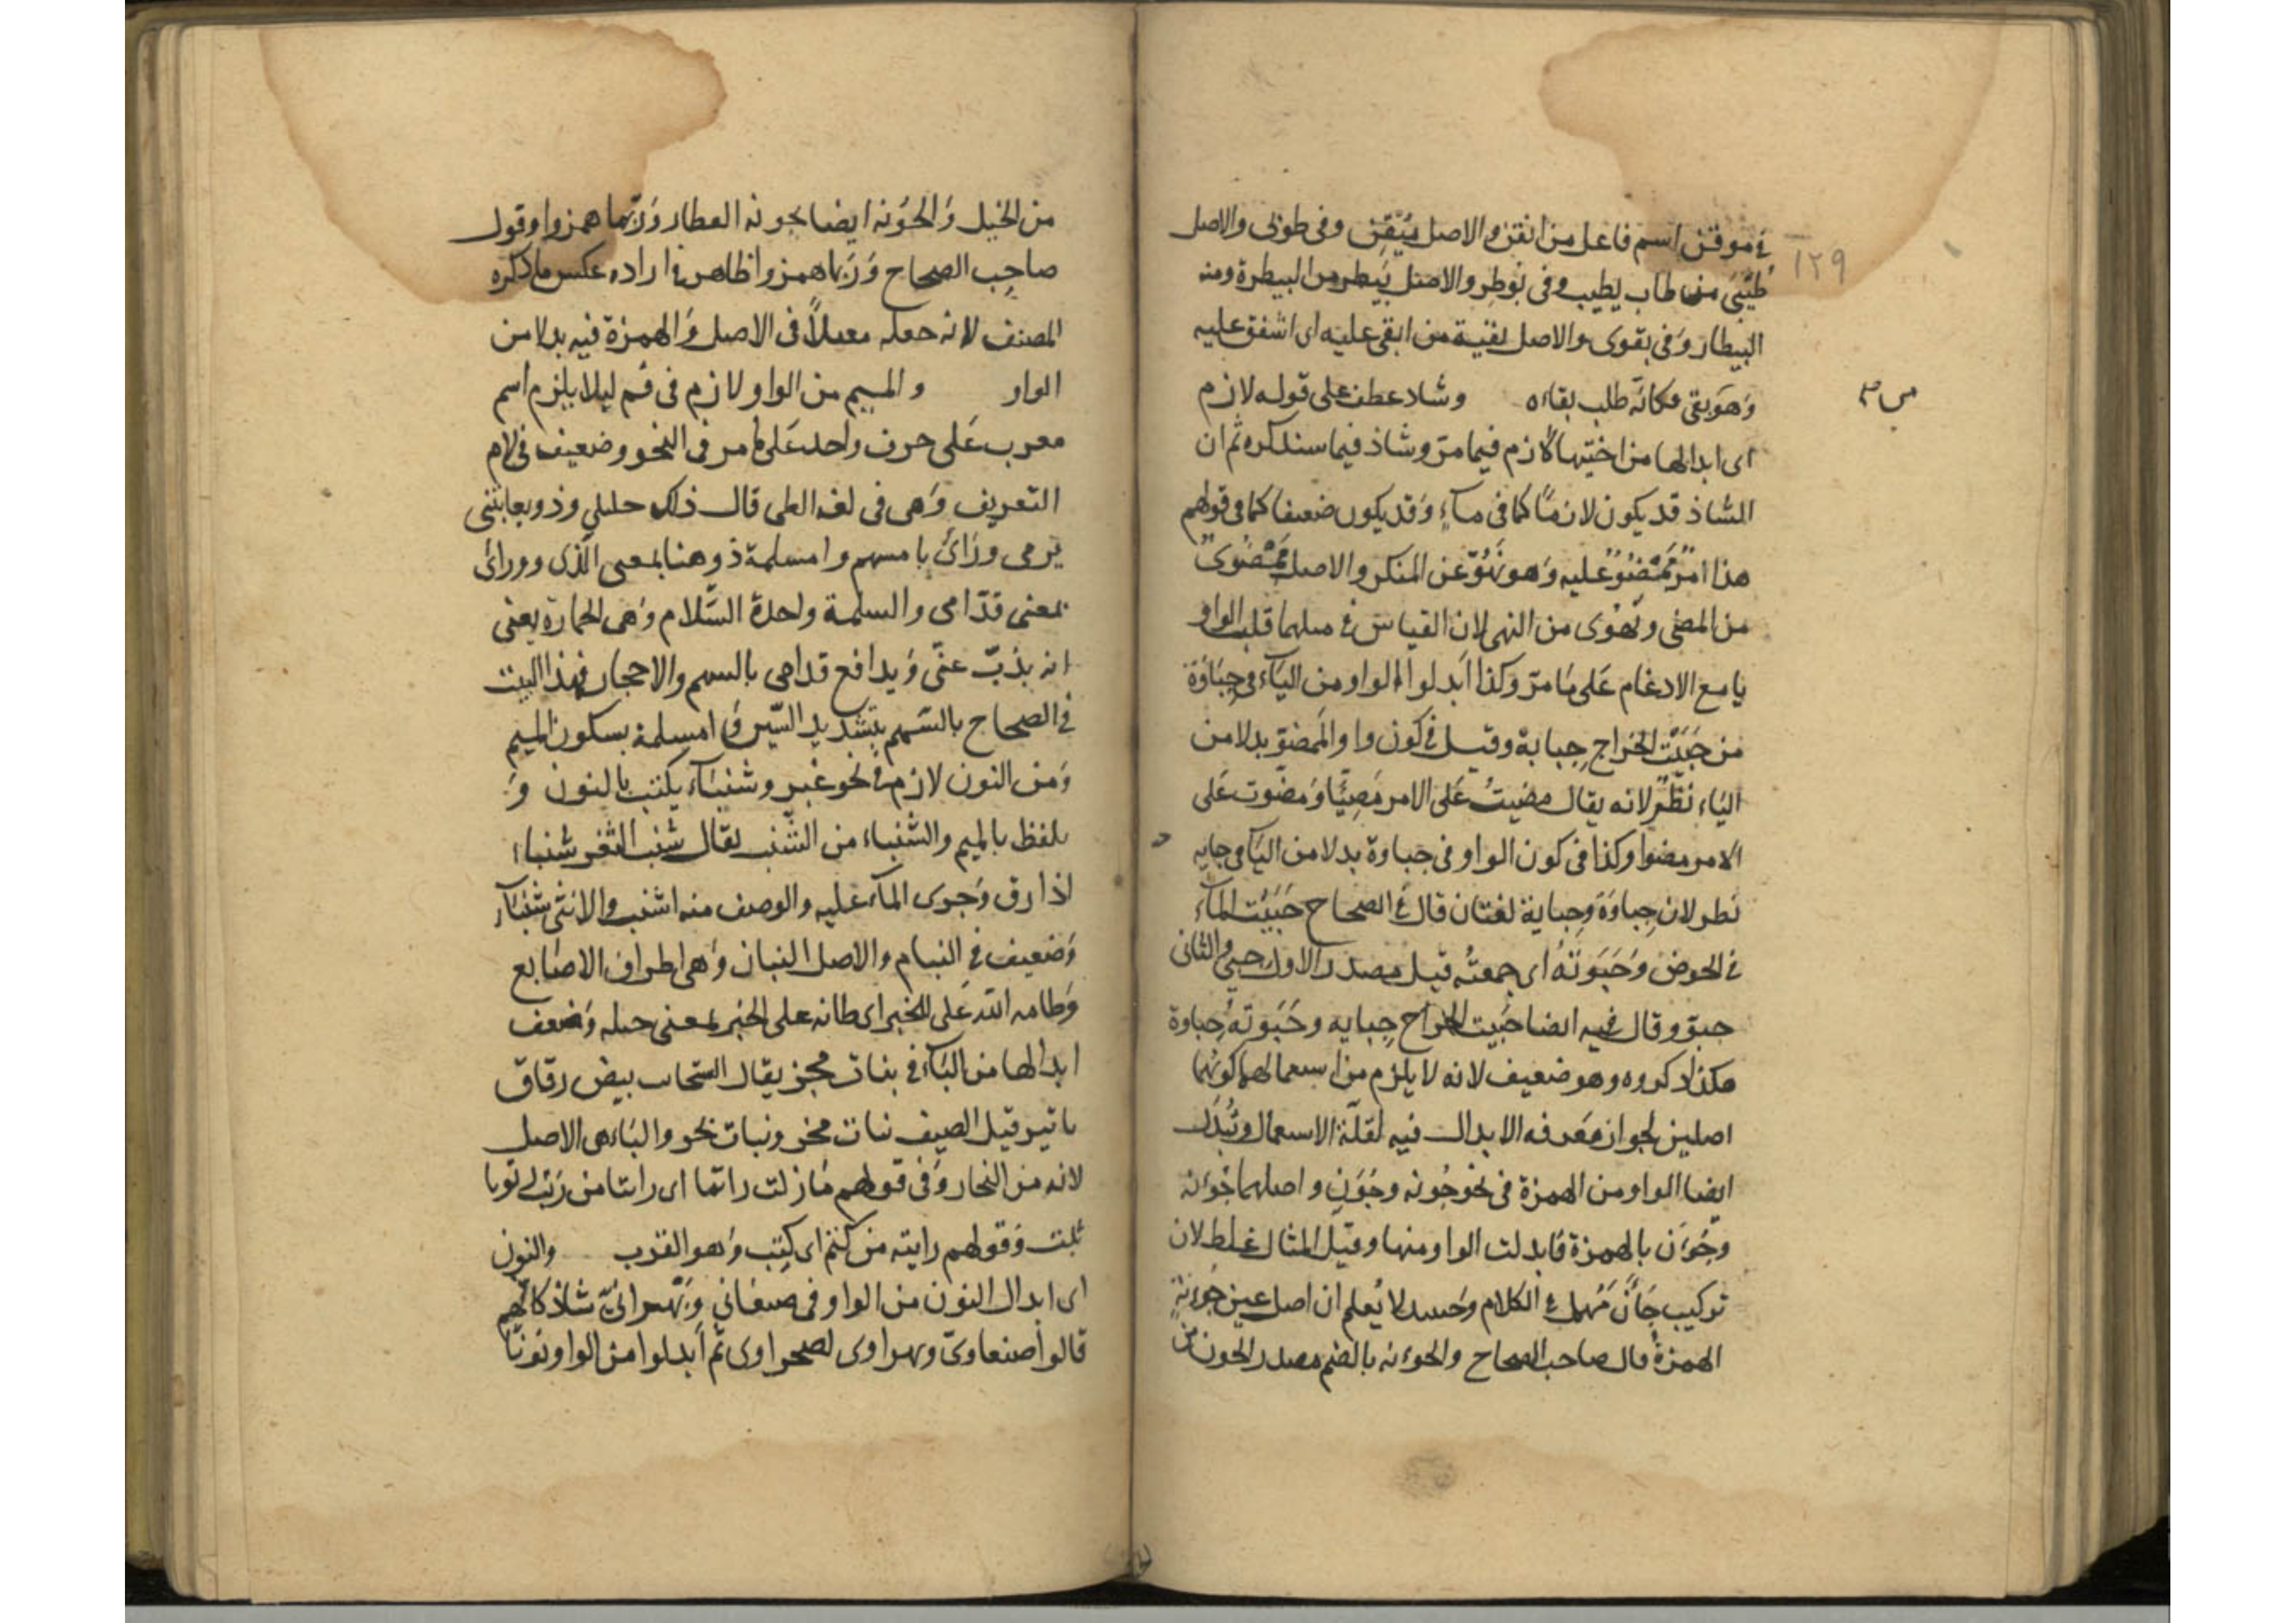 ١٢٩
في موقن اسم فاعل من ايقن والاصل مُيْقِن وفى طوبى والاصل
طُيْبَى من طاب يطيب وفى بوطر والاصل بيطر من البيطرة ومنه
البيطار وفى بقوى والاصل بقية من ابقى عليه اى اشفق عليه
وهو بقى فكانه طلب بقاءه وشاذ عطف على قوله لازم
اى ابدالها من اختيها لازم فيما مر وشاذ فيما سنذكره ثم ان
الشاذ قد يكون لازمًا كما فى ماء وقد يكون ضعيفا كما فى قولهم
هذا امر مَمْضُوّ عليه وهو نَهُوّ عن المنكر والاصل مَمْضُوىٌ
من المضى ونَهُوْى من النهى لان القياس فى مثلهما قلب الواو
يا مع الادغام على ما مرّ وكذا ابدلوا الواو من الياء فى جِبَاوَة
من جَبَيْت الخراج جِبَاية وقيل فى كون واو المَمضوّ بدلا من
الياء نَظَرٌ لانه يقال مضيتُ على الامر مَضِيًّا ومضوت على
الامر مضوا وكذا فى كون الواو فى جباوة بدلا من الياء فى جبايه
نظر لان جباوَة وجِباية لغتان قال فى الصحاح جَبَيْت الماء
فى الحوض وَجَبَوتَهُ اى جمعتُه قيل مصدر الاول جبى والثانى
جبوو قال فيه ايضا جَبَيت الخراج جِبايه وجَبَوته جِباوة
هكذا ذكروه وهو ضعيف لانه لا يلزم من استعمالهما كونهما
اصلين لجواز معرفه الابدال فيه لقلّة الاستعمال وتُبْدَل
ايضا الواو من الهمزة فى نحو جُونه وجُوَنٍ واصلهما جُؤنه
وجُؤَن بالهمزة فابدلت الواو منها وقيل المثال غلط لان
تركيب جَأَنَ مُهمل فى الكلام وحينئذ لا يُعلم ان اصل عين جُونةٍ
الهمزة قال صاحب الصحاح والجونه بالضم مصدر الجون من
من الخيل وَالجُوْنه ايضا جونه العطار وَرُبّما همزوا وقول
صاحِب الصحاح وَرُبّما همزوا ظاهر فى اراده عكس ما ذكره
المصنف لانه جعله معتلاً فى الاصل وَالهمزة فيه بدلا من
الواو والميم من الواو لازم فى فم ليلا يلزم اسم
معرب عَلى حرف واحد عَلى ما مر فى النحو وضعيف فى لام
التعريف وَهى فى لغه الطى قال ذاك خليلي وذو يعاتبنى
يَرمى ورَائ بامسهم وامسلمة ذو هنا بمعنى الّذى وورائ
بمعنى قدّامى والسلمة واحدة السَّلام وَهى الحجارة يعنى
انه يذبّ عنّى وَيدافع قدامى بالسهم والاحجار فهذا البيت
فى الصحاح بالسّهم بتشديد السّين وامسلمة بسكون الميم
وَمن النون لازم فى نحو عنبر وشنبَاء يكتب بالنون وَ
يلفظ بالميم والشنباء من الشنب يقال شنب الثغر شنبا
اذا رق وَجرى الماء عليه والوصف منه اشنب والانثى شنباء
وَضعيف فى البنام والاصل البنان وَهى اطراف الاصَابع
وَطامه الله عَلى الخير اى طانه على الخير بمعنى جبله وَضعف
ابدالها من البَاء فى بنات مخر يقال السّحاب بيض رقاق
ياتين قبل الصيف بنات مخر وبنات بخر والبَاء هى الاصل
لانه من البخار وَفى قولهم مَا زلت راتما اى راتبا من رَتب رتوبا
ثبت وَقولهم رايته من كثم اى كثب وَهو القرب والنون
اى ابدال النون من الواو فى صنعَانى وَبَهْرانىّ شاذ كانّهم
قالوا صنعاوىّ وبهراوى لصحراوى ثم ابدلوا من الواو نونًا